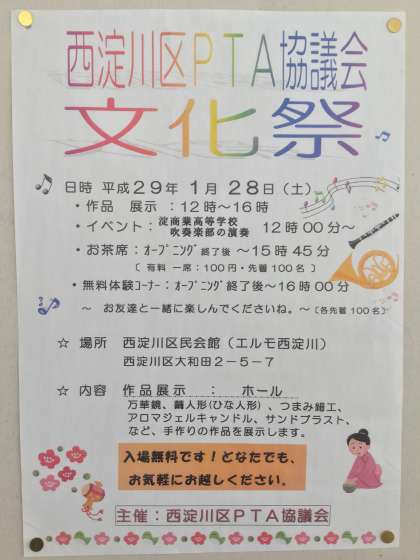 西淀川区PTA協議会
文化祭
日時 平成29年 1月 28日(土)
・作品 展示 :12時~16時
・イベント:淀商業高等学校 吹奏楽部の演奏 12時00分~
・お茶席:オープニング終了後 ~15時45分
〔 有料 一席:100円・先着100名 〕
・無料体験コーナー:オープニング終了後~16時00分
~ お友達と一緒に楽しんでくださいね。~〔各先着100名〕
☆ 場所 西淀川区民会館(エルモ西淀川)
西淀川区大和田2-5-7
☆ 内容 作品展示 : ホール
万華鏡、繭人形(ひな人形)、つまみ細工、
アロマジェルキャンドル、サンドブラスト、
など、手作りの作品を展示します。
入場無料です!どなたでも、
お気軽にお越しください。
主催:西淀川区PTA協議会